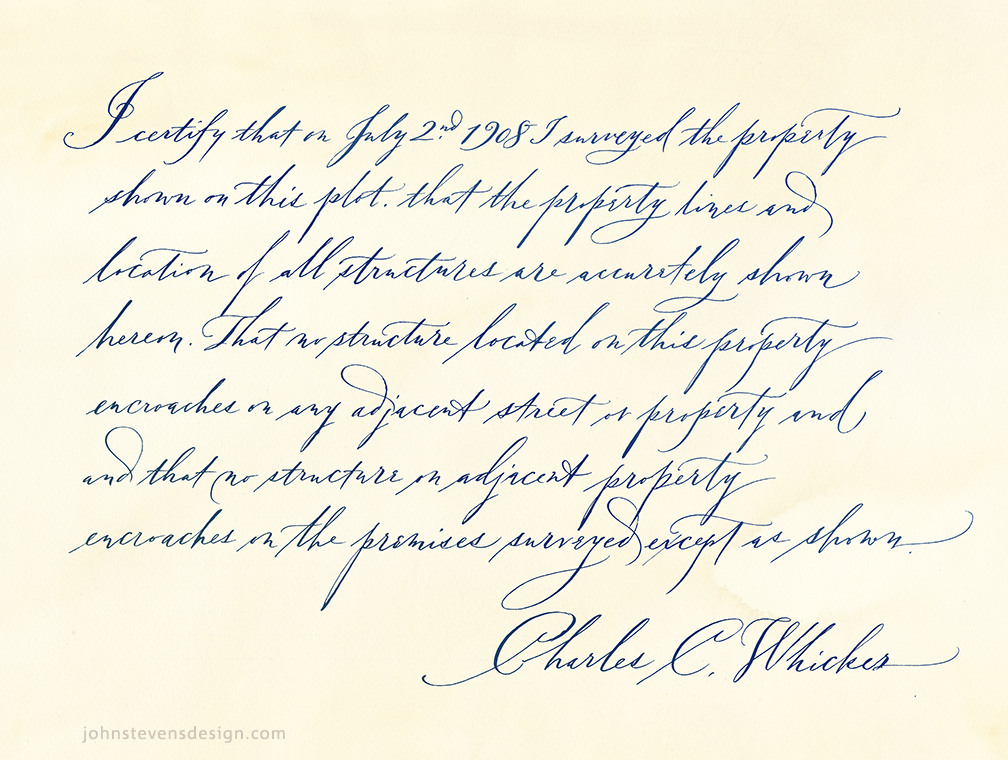 I certify that on July 2nd 1908 I surveyed the property
shown on this plot. that the property lines and
location of all structures are accurately shown
hereon. That no structure located on this property
encroaches on any adjacent street or property and
and that no structure on adjacent property
encroaches on the premises surveyed except as shown.
Charles C. Whicker
johnstevensdesign.com